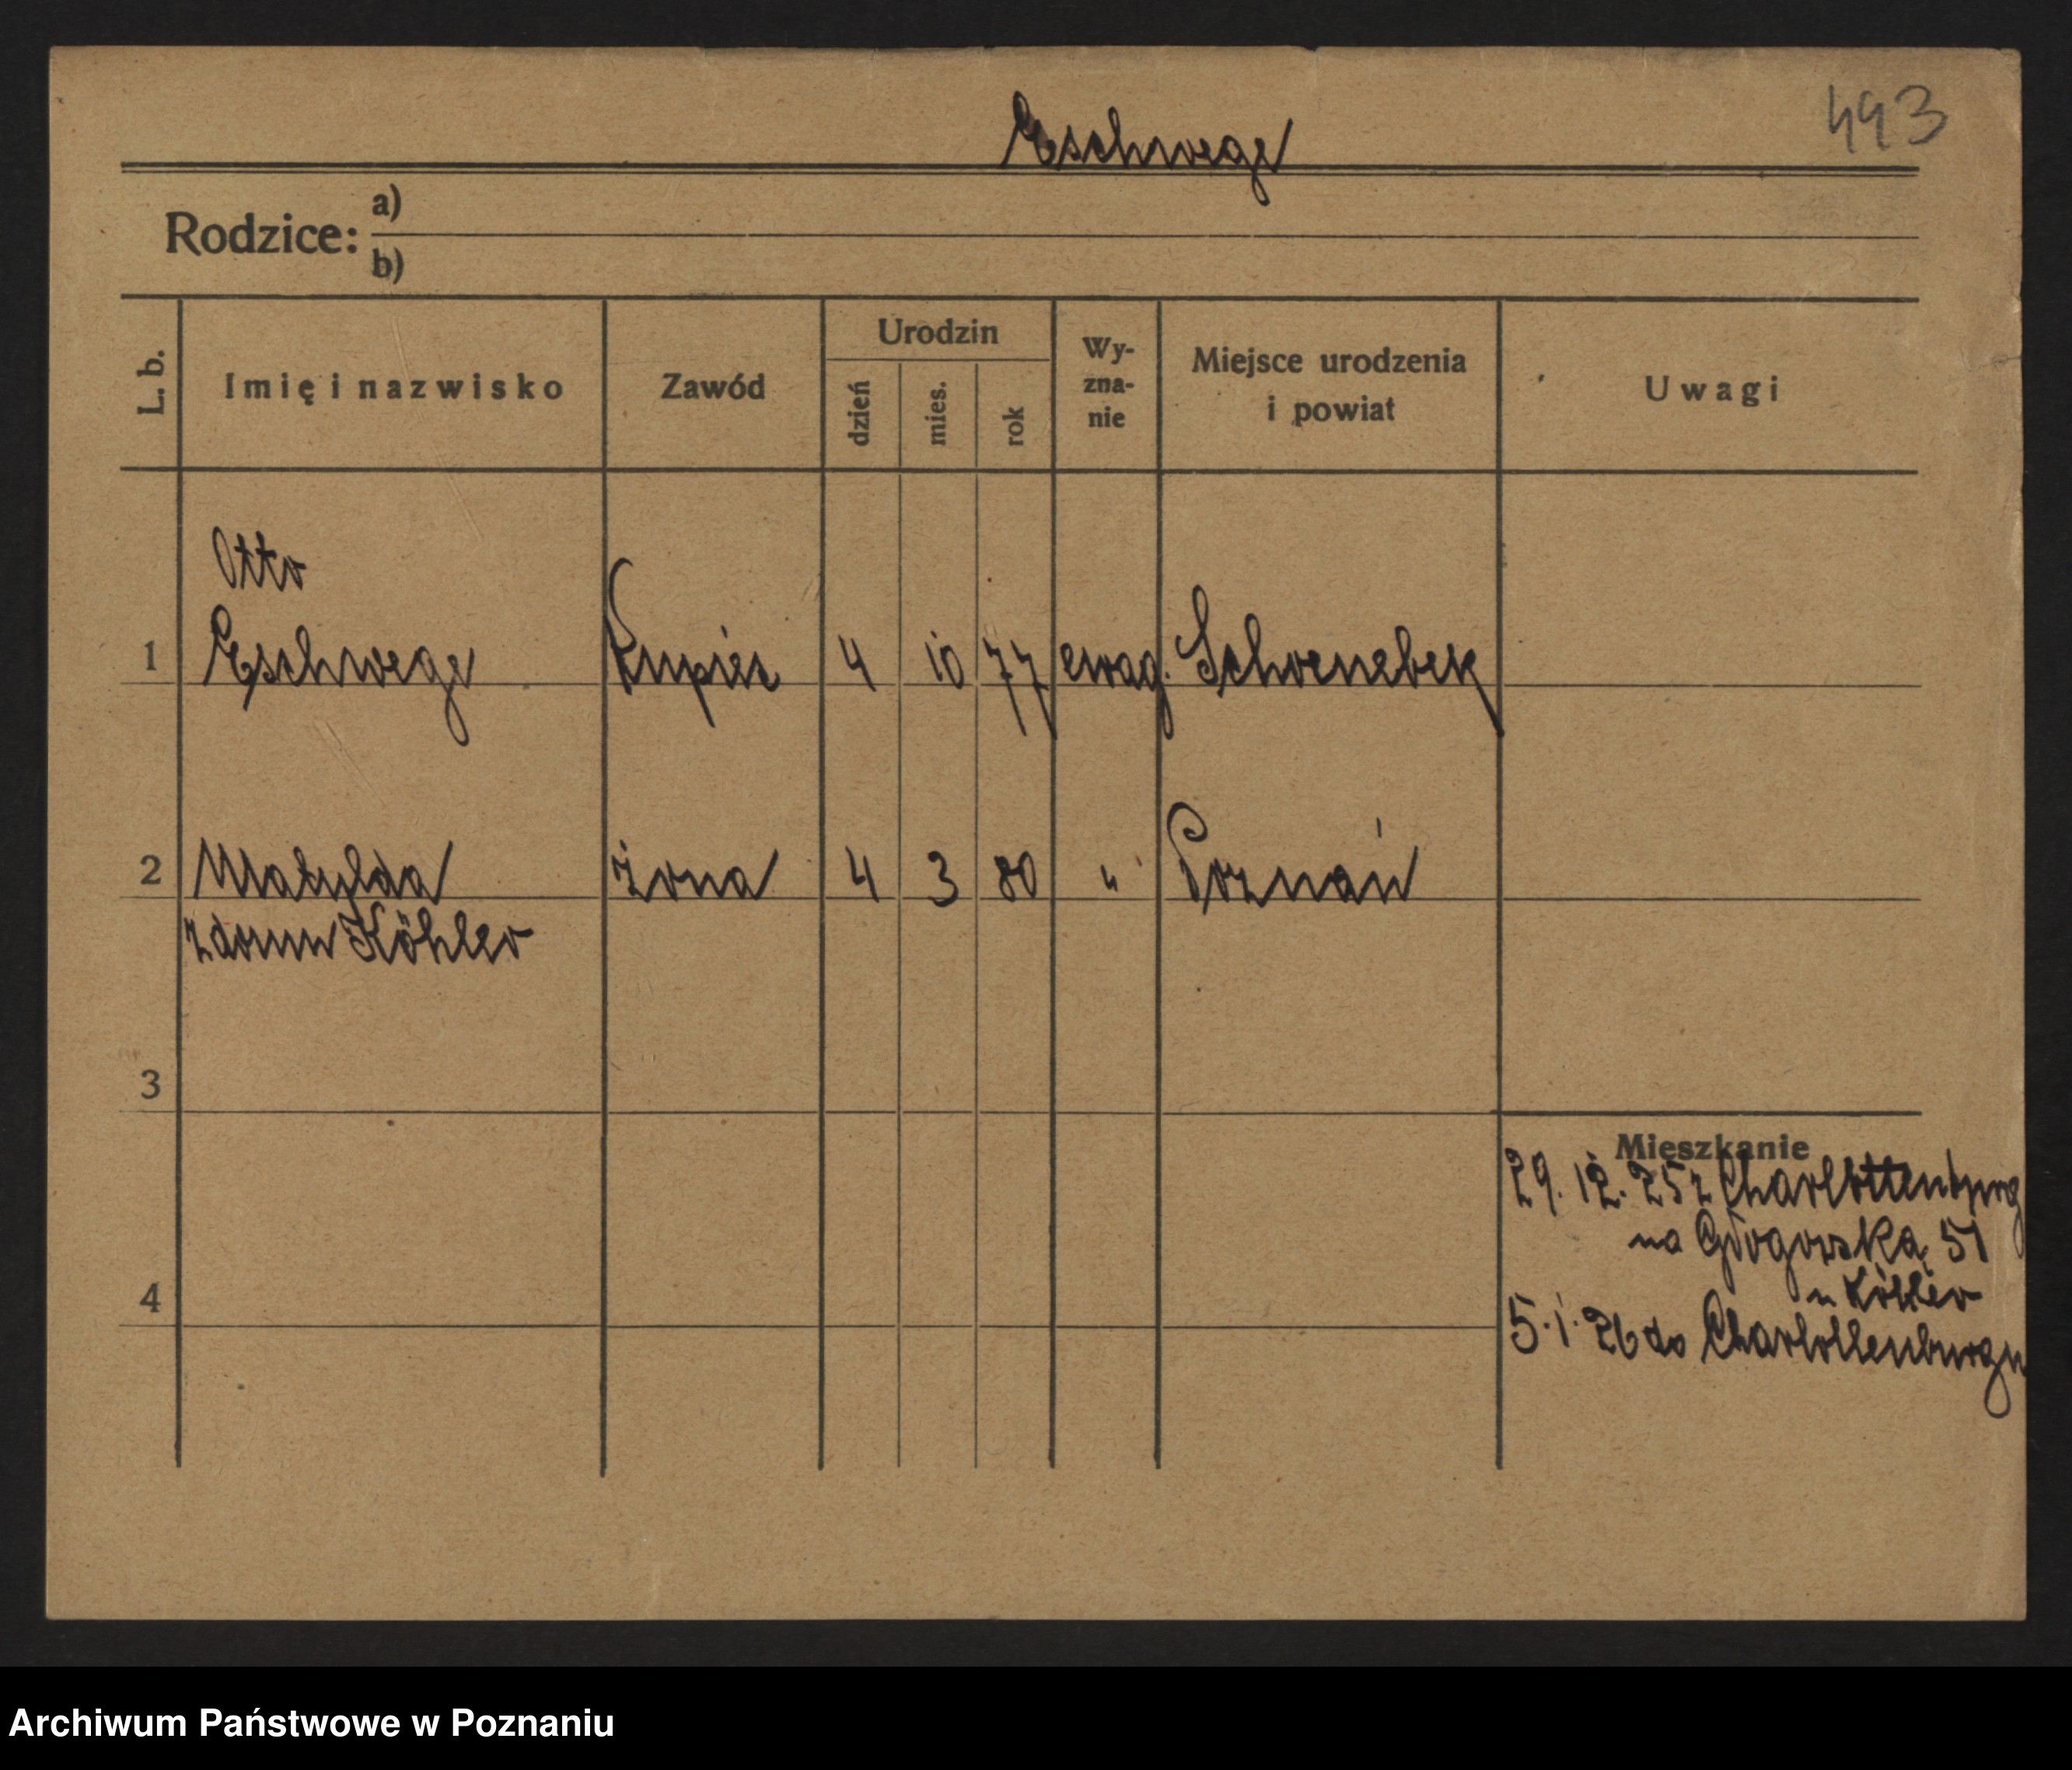 493
Eschwege
Rodzice:
a)
b)
L. b.
Imię i nazwisko
Zawód
Urodzin
dzień
mies.
rok
Wy-
zna-
nie
Miejsce urodzenia
i powiat
Uwagi
Otto
1 Eschwege Kupiec 4 10 77 ewag. Schoenebek
2 Matylda żona 4 3 80 " Poznań
z domu Köhler
3
Mieszkanie
29. 12. 25 z Charlottenburg
na Głogowska 51
u Köhler
4
5. 1. 26 do Charlottenburgu
Archiwum Państwowe w Poznaniu